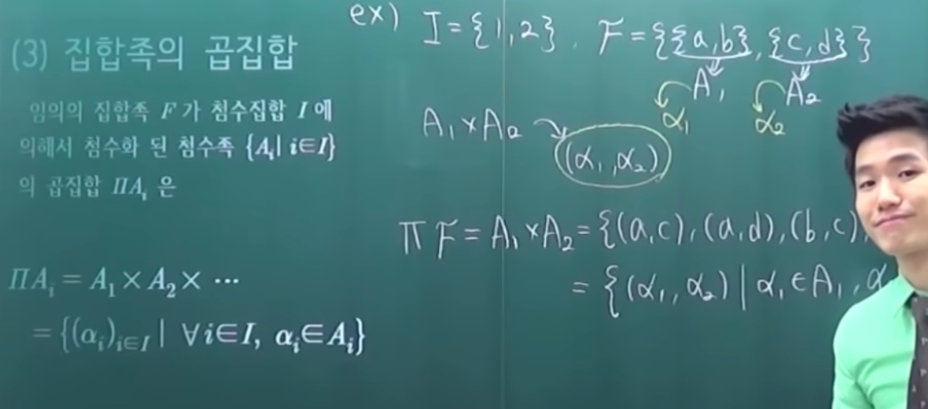 (3) 집합족의 곱집합
임의의 집합족 F 가 첨수집합 I 에
의해서 첨수화 된 첨수족 {Aᵢ| i∈I}
의 곱집합 ΠAᵢ 은
ΠAᵢ = A₁ × A₂ × ⋯
= {(αᵢ)ᵢ∈I | ∀i∈I, αᵢ∈Aᵢ}
ex) I = {1, 2}, F = {{a,b}, {c,d}}
A₁ A₂
α₁ α₂
A₁×A₂
(α₁, α₂)
ΠF = A₁×A₂ = {(a,c), (a,d), (b,c),
= {(α₁, α₂) | α₁∈A₁, α